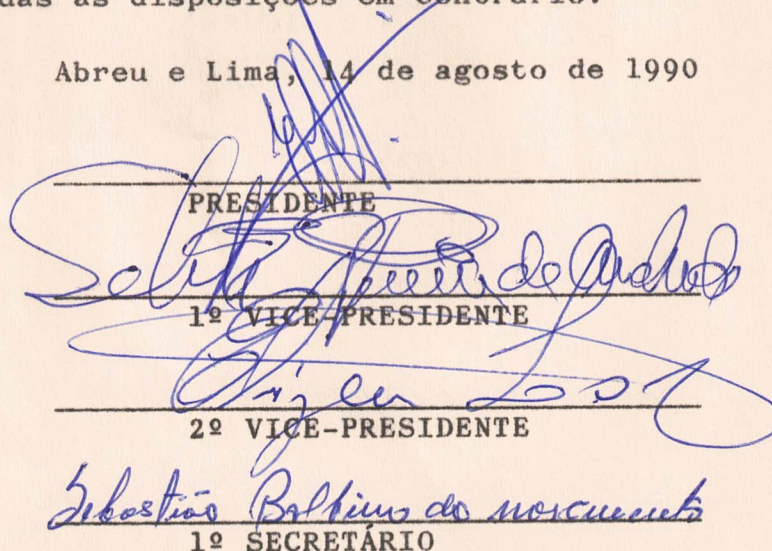 das as disposições em contrário.
Abreu e Lima, 14 de agosto de 1990
PRESIDENTE
de Andrade
1º VICE-PRESIDENTE
2º VICE-PRESIDENTE
Sebastião Balbino do nascimento
1º SECRETÁRIO